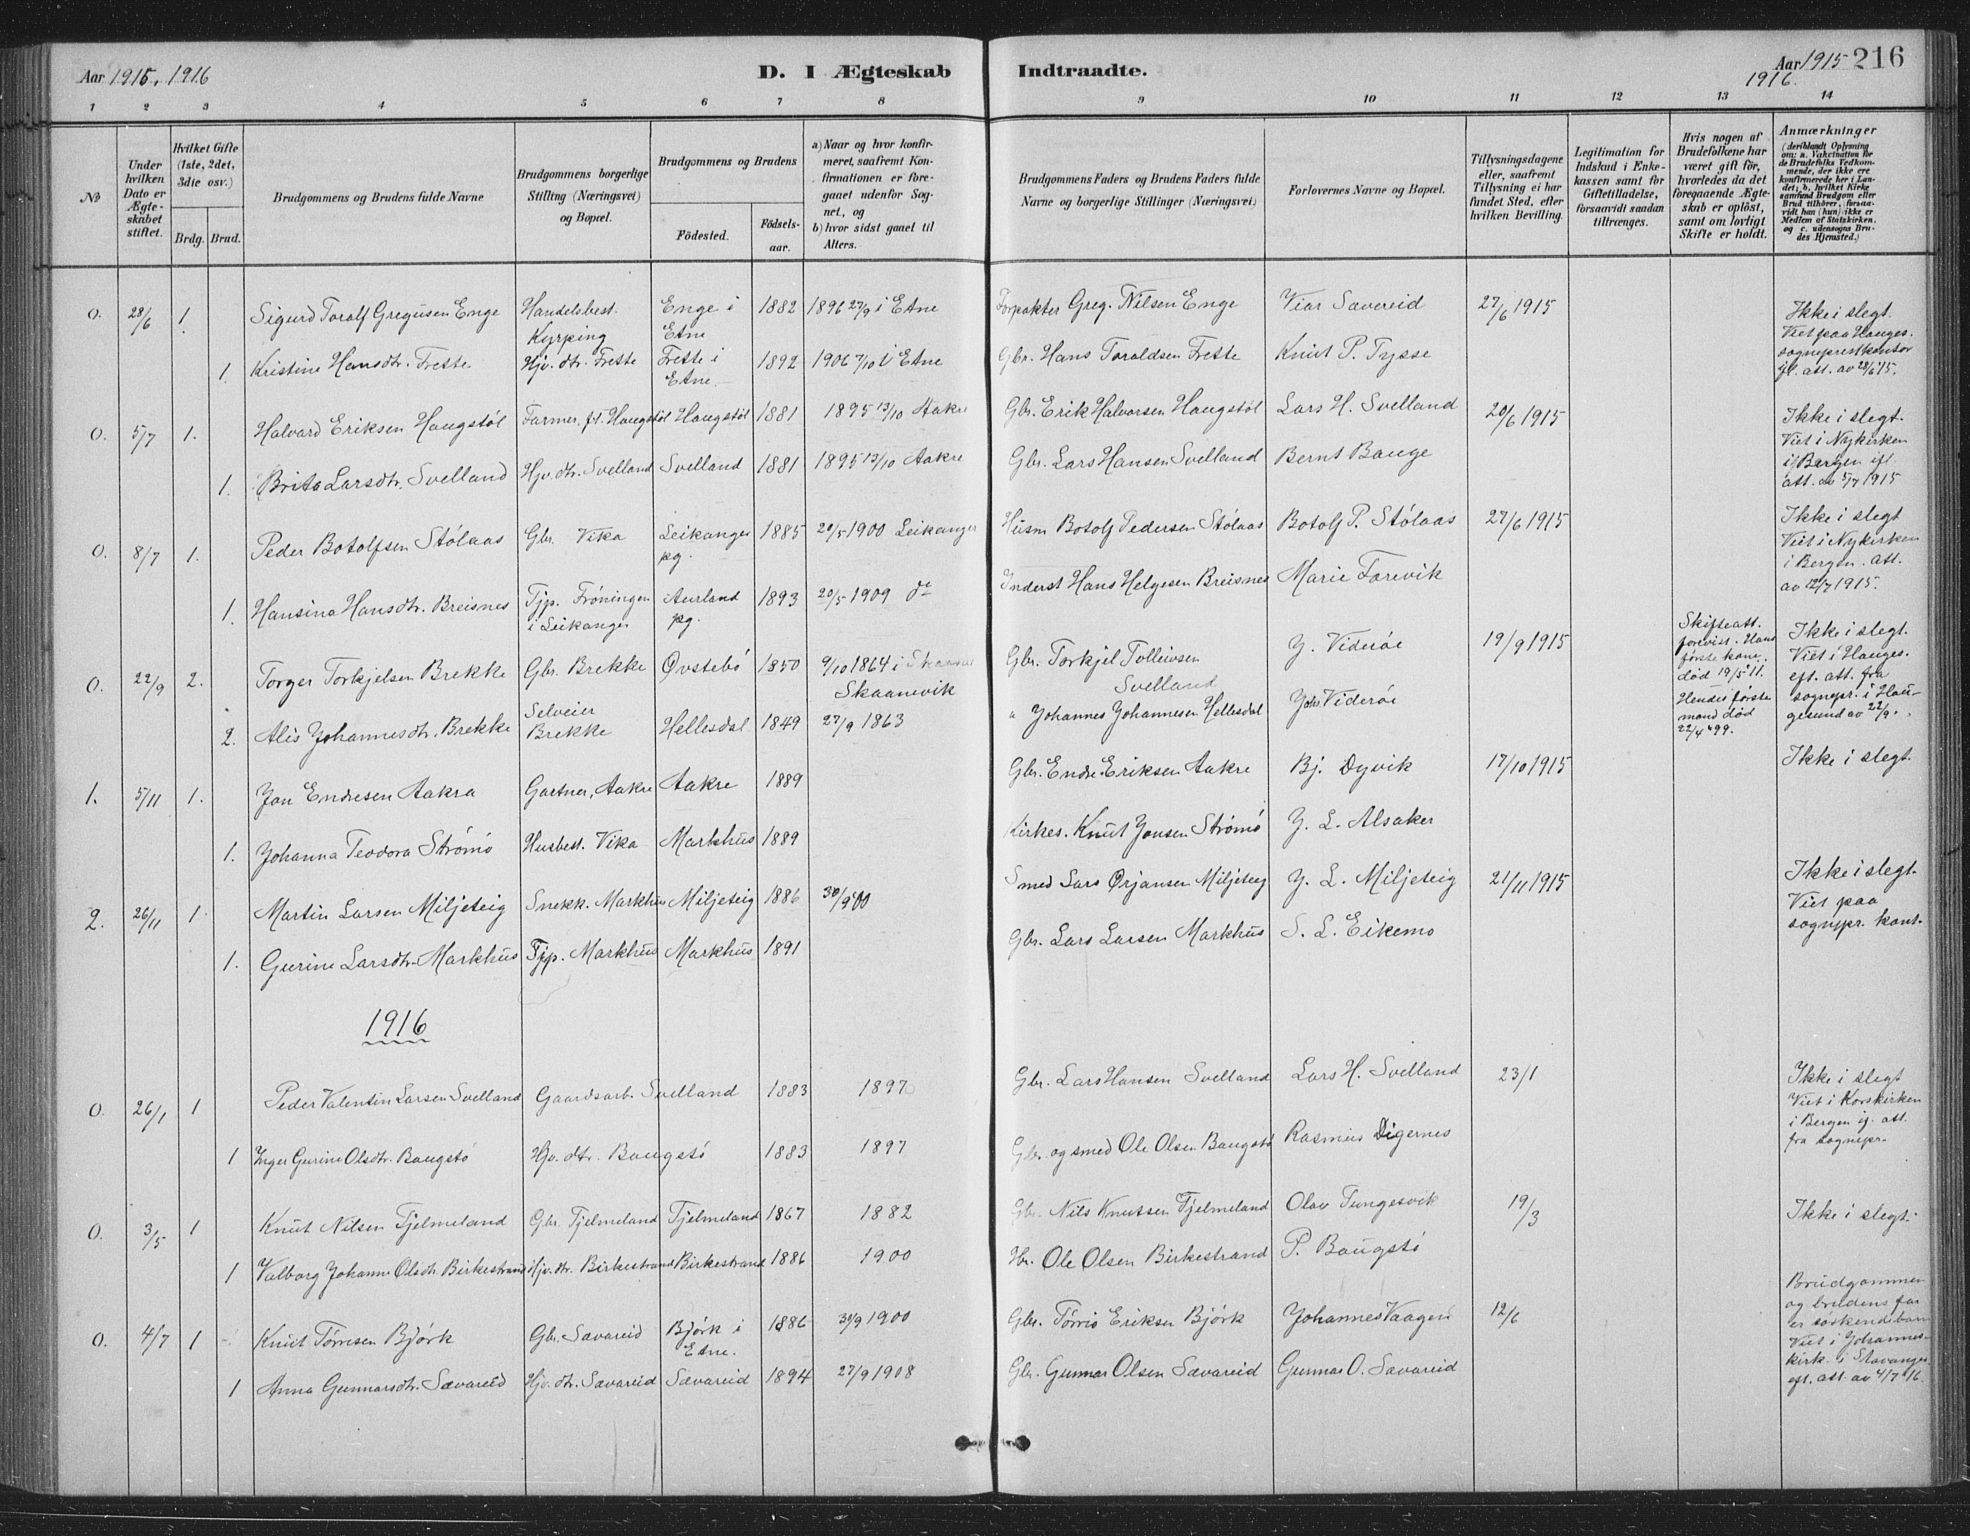 Aar 1915, 1916
D. I Ægteskab Indtraadte.
Aar 1915 216
1916.
1 2 3 4 5 6 7 8 9 10 11 12 13 14
No
Under hvilken Dato er Ægteskabet stiftet.
Hvilket Gifte (1ste, 2det, 3die osv.)
Brdg. Brud.
Brudgommens og Brudens fulde Navne
Brudgommens borgerlige Stilling (Næringsvei) og Bopæl.
Brudgommens og Brudens
Födested. Födselsaar.
a) Naar og hvor konfirmeret, saafremt Konfirmationen er foregaaet udenfor Sognet, og
b) hvor sidst gaaet til Alters.
Brudgommens Faders og Brudens Faders fulde Navne og borgerlige Stillinger (Næringsvei)
Forlovernes Navne og Bopæl.
Tillysningsdagene eller, saafremt Tillysning ei har fundet Sted, efter hvilken Bevilling.
Legitimation for Indskud i Enkekassen samt for Giftetilladelse, forsaavidt saadan tiltrænges.
Hvis nogen af Brudefolkene har været gift för, hvorledes da det foregaaende Ægteskab er oplöst, samt om lovligt Skifte er holdt.
Anmærkninger
(deriblandt Oplysning om: a. Vakcination for de Brudefolks Vedkommende, der ikke ere konfirmerede her i Landet; b. hvilket Kirkesamfund Brudgom eller Brud tilhörer, forsaavidt han (hun) ikke er Medlem af Statskirken, og c. udensogns Brudes Hjemsted.)
0. 28/6 1. Sigurd Toralf Gregusen Enge Handelsbest. Kyrping Enge i Etne 1882 1896 27/9 i Etne Forpakter Greg. Nilsen Enge Viar Savereid 27/6 1915 Ikke i slegt. Viet paa Hauges. sogneprestkontor jfl. att. av 28/6 15.
1. Kristine Hansdtr. Frette Hjv. dtr. Frette Frette i Etne. 1892 1906 7/10 i Etne Gbr. Hans Toraldsen Frette Knut P. Tysse
0. 5/7 1. Halvard Eriksen Haugstøl Farmer, fl. Haugstøl Haugstøl 1881 1895 13/10 Aakre Gbr. Erik Halvorsen Haugstøl Lars H. Svelland 20/6 1915 Ikke i slegt. Viet i Nykirken i Bergen ifl att. av 5/7 1915
1. Brita Larsdtr. Svelland Hjv. dtr. Svelland Svelland 1881 1895 13/10 Aakre Gbr. Lars Hansen Svelland Bernt Bauge
0. 8/7 1. Peder Botolfsen Stølaas Gbr. Vika Leikanger pg. 1885 20/5 1900 Leikanger Husm Botolf Pedersen Stølaas Botolf P. Stølaas 27/6 1915 Ikke i slegt Viet i Nykirken i Bergen. att. av 12/7 1915.
1. Hansina Hansdtr. Breisnes Tjp. Frøningen i Leikanger Aurland pg. 1893 20/5 1909 do Inderst Hans Helgesen Breisnes Marie Farevik
0. 22/9 2. Torger Torkjelsen Brekke Gbr. Brekke Øvstebø 1850 9/10 1864 i Skaanevik Gbr. Torkjel Tolleivsen Svelland Y. Viderøe 19/9 1915 Skifteatt. forevist. Hans første kone død 19/5 11. Ikke i slegt. Viet i Hauges. eft. att. fra sognepr. i Haugesund av 22/9.
2. Alis Johannesdtr. Brekke Selveier Brekke Hellesdal 1849 27/9 1863 " Johannes Johannesen Hellesdal Joh Viderøe Hendes første mand død 22/4 99.
1. 5/11 1. Jon Endresen Aakra Gartner, Aakre Aakre 1889 Gbr. Endre Eriksen Aakre Bj. Dyvik 17/10 1915 Ikke i slegt.
1. Johanna Teodora Strømø Husbest. Vika Markhus 1889 Kirkes. Knut Jonsen Strømø Y. L. Alsaker
2. 26/11 1. Martin Larsen Miljeteig Snekk. Markhus Miljeteig 1886 30/9 00 Smed Lars Ørjansen Miljeteig Y. L. Miljeteig 21/11 1915 Ikke i slegt. Viet paa sognepr. kont.
1. Gurine Larsdtr. Markhus Tjp. Markhus Markhus 1891 Gbr. Lars Larsen Markhus S. L. Eikemo
1916
0. 26/1 1 Peder Valentin Larsen Svelland Gaardsarb. Svelland 1883 1897 Gbr. Lars Hansen Svelland Lars H. Svelland 23/1 Ikke i slegt Viet i Korskirken i Bergen ij. att. fra sognepr.
1 Inger Gurine Olsdtr. Baugstø Hjv. dtr. Baugstø 1883 1897 Gbr. og smed Ole Olsen Baugstø Rasmus Digernes
0. 3/5 1 Knut Nilsen Fjelmeland Gbr. Fjelmeland Fjelmeland 1867 1882 Gbr. Nils Knutsen Fjelmeland Olav Tungesvik 19/3 Ikke i slegt.
1 Valborg Johanne Olsdtr Birkestrand Hjv. dtr. Birkestrand Birkestrand 1886 1900 Hbr. Ole Olsen Birkestrand P. Baugstø
0. 4/7 1 Knut Tørresen Bjørk Gbr. Savareid Bjørk i Etne. 1886 30/9 1900 Gbr. Tørris Eriksen Bjørk Johannes Vaagen 12/6 Brudgommen og brudens far er søskendebarn Viet i Johannes-kirk. i Stavanger eft. att. av 4/7 16.
1 Anna Gunnarsdtr. Sævareid Hjv. dtr. Sævareid Sævareid 1894 27/9 1908 Gbr. Gunnar Olsen Sævareid Gunnar O. Sævareid